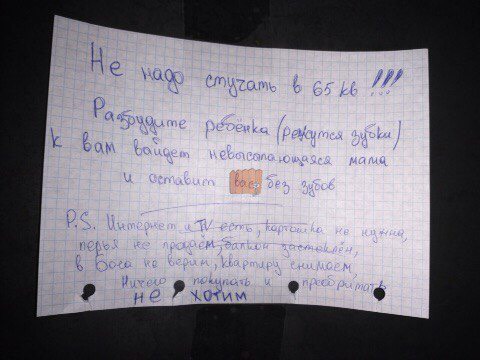 Не надо стучать в 65 кв !!!
Разбудите ребёнка (режутся зубки)
к вам выйдет невысыпающаяся мама
и оставит вас без зубов
P.S. Интернет и TV есть, картошка не нужна,
перья не продаём, балкон застеклён,
в Бога не верим, квартиру снимаем,
Ничего покупать и приобритать
не хотим